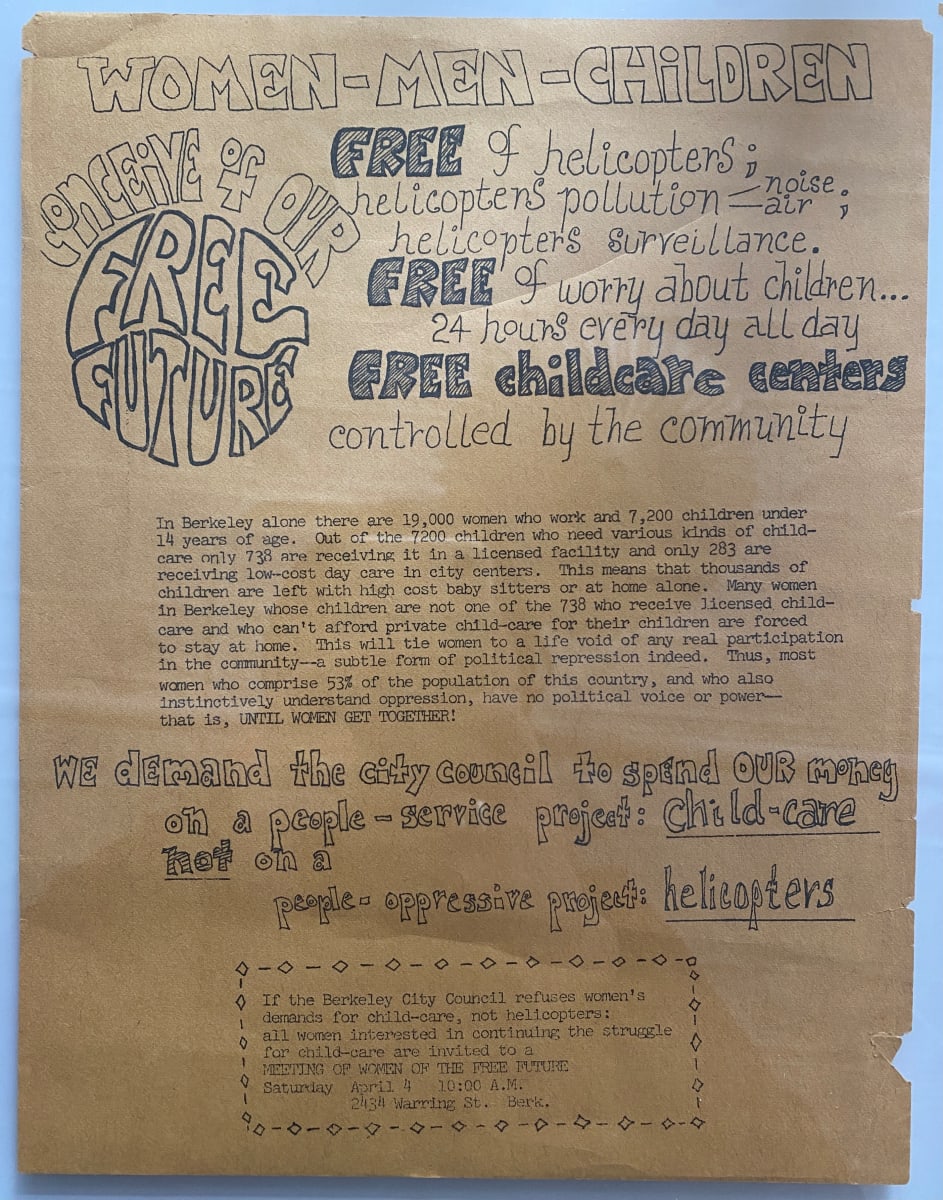 WOMEN-MEN-CHiLDREN
CONCEiVE OF OUR
FREE
FUTURE
FREE of helicopters;
helicopters pollution — noise
— air ;
helicopters surveillance.
FREE of worry about children...
24 hours every day all day
FREE childcare centers
controlled by the community
In Berkeley alone there are 19,000 women who work and 7,200 children under
14 years of age. Out of the 7200 children who need various kinds of child-
care only 738 are receiving it in a licensed facility and only 283 are
receiving low-cost day care in city centers. This means that thousands of
children are left with high cost baby sitters or at home alone. Many women
in Berkeley whose children are not one of the 738 who receive licensed child-
care and who can't afford private child-care for their children are forced
to stay at home. This will tie women to a life void of any real participation
in the community--a subtle form of political repression indeed. Thus, most
women who comprise 53% of the population of this country, and who also
instinctively understand oppression, have no political voice or power--
that is, UNTIL WOMEN GET TOGETHER!
WE demand the city council to spend OUR money
on a people-service project: Child-care
not on a
people-oppressive project: helicopters
If the Berkeley City Council refuses women's
demands for child-care, not helicopters:
all women interested in continuing the struggle
for child-care are invited to a
MEETING OF WOMEN OF THE FREE FUTURE
Saturday April 4 10:00 A.M.
2434 Warring St. Berk.